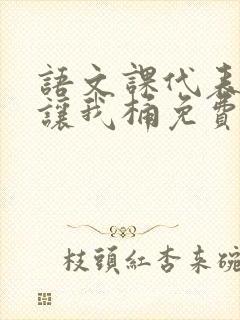 語文課代表
讓我桶免費
枝頭紅杏来碗